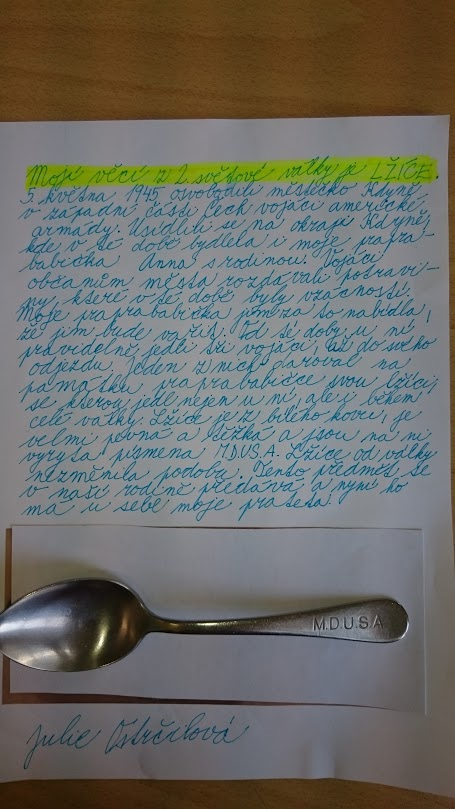 Mojí věcí z 2. světové války je LŽÍCE.
5. května 1945 osvobodili městečko Kdyně
v západní části Čech vojáci americké
armády. Usídlili se na okraji Kdyně,
kde v té době bydlela i moje prapra-
babička Anna s rodinou. Vojáci
občanům města rozdávali potravi-
ny, které v té době byly vzácností.
Moje praprababička jim za to nabídla,
že jim bude vařit. Od té doby u ní
pravidelně jedli tři vojáci, až do svého
odjezdu. Jeden z nich daroval na
památku praprababičce svou lžíci,
se kterou jedl nejen u ní, ale i během
celé války. Lžíce je z bílého kovu, je
velmi pevná a těžká a jsou na ní
vyrytá písmena M.D.U.S.A. Lžíce od války
nezměnila podobu. Tento předmět se
v naší rodině předává a nyní ho
má u sebe moje prateta.
M.D.U.S.A
Julie Ostrčilová